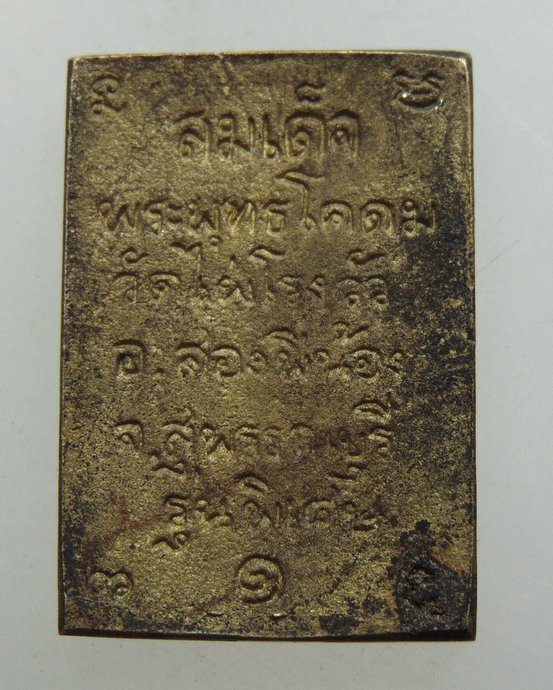 สมเด็จ
พระพุทธโคดม
วัดไผ่โรงวัว
อ.สองพี่น้อง
จ.สุพรรณบุรี
รุ่นพิเศษ
๑